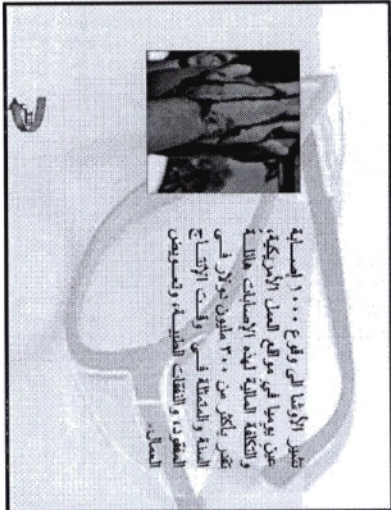 تشير الأوشا إلى وقوع ١٠٠٠ إصابة
عين يوميا في مواقع العمل الأمريكية،
والتكلفة المالية لهذه الإصابات هائلة
تقدر بأكثر من ٣٠٠ مليون دولار في
السنة والمتمثلة في وقت الإنتاج
المفقود، والنفقات الطبية، وتعويض
العمال.